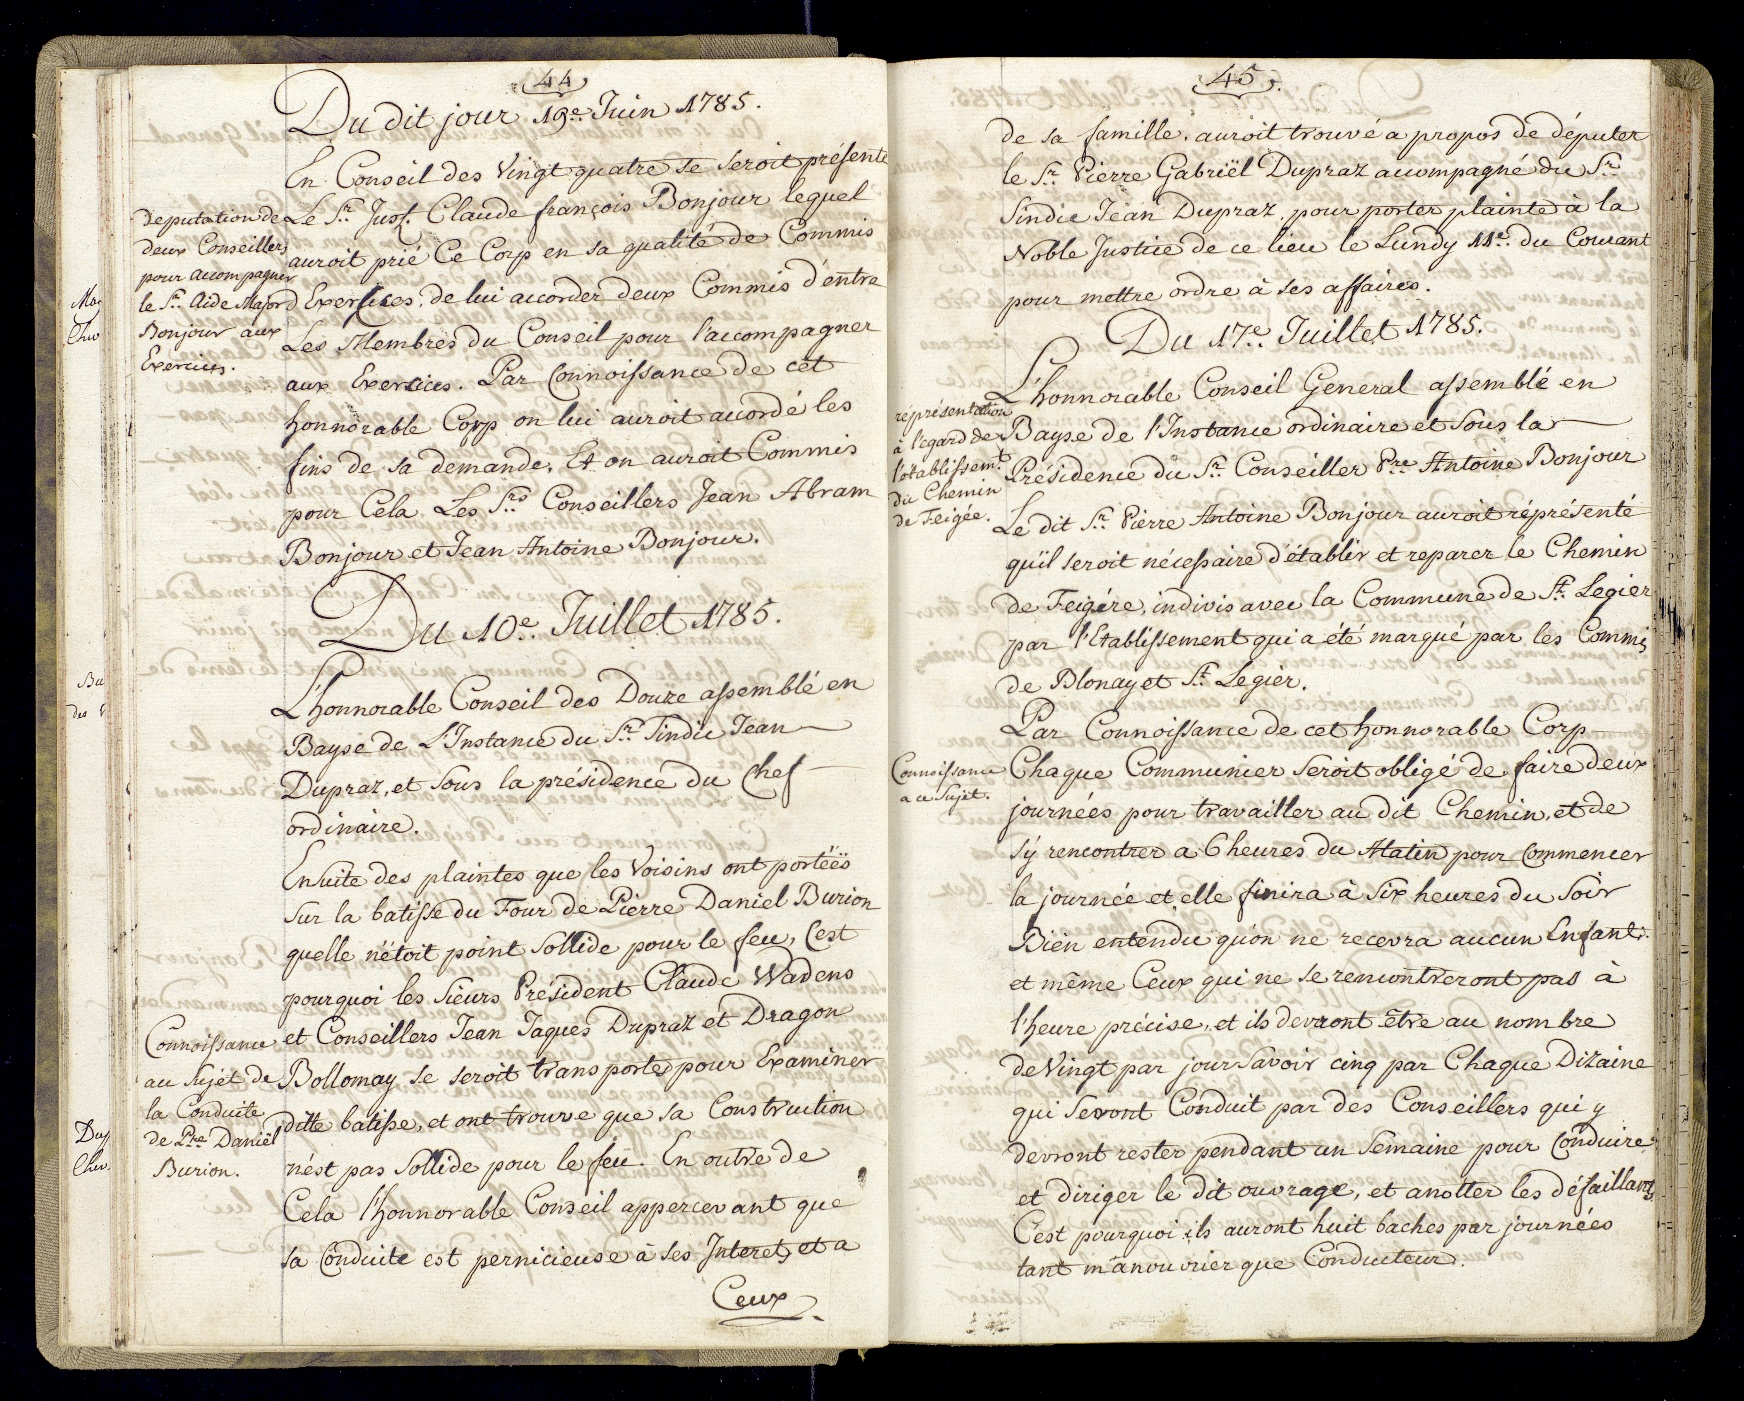 44
Du dit jour 19e. Juin 1785.
En Conseil des Vingt quatre se seroit présenté
Le Sr. Jusr. Claude françois Bonjour lequel
auroit prié Ce Corp en sa qualité de Commis
d'Exercices. de lui accorder deux Commis d'entre
Les Membres du Conseil pour l'accompagner
aux Exercices. Par Connoissance de cet
honnorable Corp on lui auroit accordé les
fins de sa demande. Et on auroit Commis
pour Cela Les Srs. Conseillers Jean Abram
Bonjour et Jean Antoine Bonjour.
Deputation de
deux Conseillers
pour accompagner
le Sr. Aide Major
Bonjour aux
Exercices.
Du 10e. Juillet 1785.
L'honnorable Conseil des Douze assemblé en
Bayse de L'Instance du Sr. Sindic Jean
Dupraz, et Sous la présidence du Chef
ordinaire.
Ensuite des plaintes que les Voisins ont portéës
Sur la batisse du Four de Pierre Daniel Burion
quelle n'étoit point Sollide pour le feu, C'est
pourquoi les Sieurs Président Claude Wadens
et Conseillers Jean Jaques Dupraz et Dragon
Bollomay se seroit transportes pour Examiner
ditte batisse, et ont trouve que sa Construction
n'ést pas Sollide pour le feu. En outre de
Cela l'honnorable Conseil appercevant que
sa Conduite est pernicieuse à ses Interets, et a
Ceux
Connoissance
au Sujet de
la Conduite
de Pre. Daniel
Burion.
45.
de sa famille. auroit trouvé a propos de députer
le Sr. Pierre Gabriël Dupraz accompagné du Sr.
Sindic Jean Dupraz. pour porter plainte à la
Noble Justice de ce lieu le Lundy 11e. du Courant
pour mettre ordre à ses affaires.
Du 17e. Juillet 1785.
L'honnorable Conseil General assemblé en
Bayse de l'Instance ordinaire et Sous la
Présidence du Sr. Conseiller Pre. Antoine Bonjour
Le dit Sr. Pierre Antoine Bonjour auroit réprésenté
qu'il seroit nécessaire d'établir et reparer le Chemin
de Feigére, indivis avec la Commune de St. Legier
par l'Etablissement qui a été marqué par les Commis
de Blonay et St. Legier.
réprésentation
à l'egard de
l'établissemt.
du Chemin
de Feigée.
Par Connoissance de cet honnorable Corp
Chaque Communier Seroit obligé de faire deux
journées pour travailler au dit Chemin, et de
s'y rencontrer a 6 heures du Matin pour Commencer
la journée et elle finira à Six heures du Soir
Bien entendu qu'on ne recevra aucun Enfant.
et même Ceux qui ne se rencontreront pas à
l'heure précise, et ils devront être au nombre
de Vingt par jour Savoir cinq par Chaque Dizaine
qui Seront Conduit par des Conseillers qui y
devront rester pendant un Semaine pour Conduire
et diriger le dit ouvrage, et anotter les défaillants
C'est pourquoi ils auront huit baches par journées
tant manouvrier que Conducteur.
Connoissance
a ce Sujet.